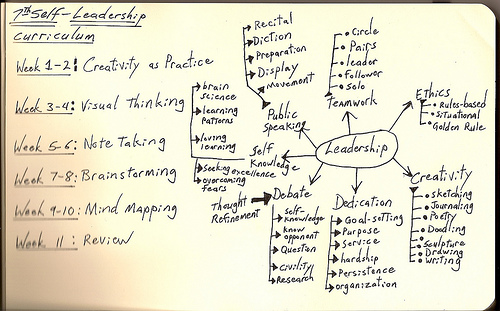 7th Self-Leadership
curriculum
Week 1-2: Creativity as Practice
Week 3-4: Visual Thinking
Week 5-6: Note Taking
Week 7-8: Brainstorming
Week 9-10: Mind Mapping
Week 11: Review
Leadership
Public
Speaking
Recital
Diction
Preparation
Display
Movement
Teamwork
Circle
Pairs
leader
follower
solo
Ethics
Rules-based
Situational
Golden Rule
Creativity
Sketching
Journaling
Poetry
Doodling
Sculpture
Drawing
Writing
Dedication
Goal-setting
Purpose
Service
hardship
Persistence
organization
Thought
Refinement
Debate
Self-
knowledge
know
opponent
Question
civility
Research
Self
Knowledge
brain
science
learning
patterns
loving
learning
Seeking excellence
overcoming
fears